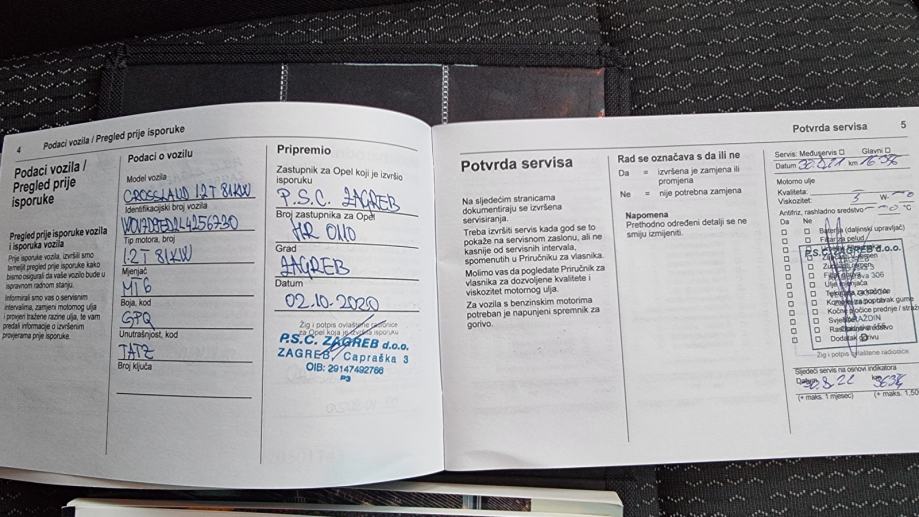 4 Podaci vozila / Pregled prije isporuke
Podaci vozila /
Pregled prije
isporuke
Pregled prije isporuke vozila
i isporuka vozila
Prije isporuke vozila, izvršili smo
temeljit pregled prije isporuke kako
bismo osigurali da vaše vozilo bude u
ispravnom radnom stanju.
Informirali smo vas o servisnim
intervalima, zamjeni motornog ulja
i provjeri tražene razine ulja, te vam
predali informacije o izvršenim
provjerama prije isporuke.
Podaci o vozilu
Model vozila
CROSSLAND 1.2T 81KW
Identifikacijski broj vozila
Tip motora, broj
1.2T 81KW
Mjenjač
MT6
Boja, kod
GPQ
Unutrašnjost, kod
TATZ
Broj ključa
Pripremio
Zastupnik za Opel koji je izvršio
isporuku
P.S.C. ZAGREB
Broj zastupnika za Opel
HR 0110
Grad
ZAGREB
Datum
02.10.2020
Žig i potpis ovlaštene radionice
za Opel koja je izvršila isporuku
P.S.C. ZAGREB d.o.o.
ZAGREB, Capraška 3
OIB: 29147492766
P3
Potvrda servisa 5
Potvrda servisa
Na sljedećim stranicama
dokumentiraju se izvršena
servisiranja.
Treba izvršiti servis kada god se to
pokaže na servisnom zaslonu, ali ne
kasnije od servisnih intervala,
spomenutih u Priručniku za vlasnika.
Molimo vas da pogledate Priručnik za
vlasnika za dozvoljene kvalitete i
viskozitet motornog ulja.
Za vozila s benzinskim motorima
potreban je napunjeni spremnik za
gorivo.
Rad se označava s da ili ne
Da = izvršena je zamjena ili
promjena
Ne = nije potrebna zamjena
Napomena
Prethodno određeni detalji se ne
smiju izmijeniti.
Servis: Međuservis Glavni
Datum km
Motorno ulje
Kvaliteta:
Viskozitet: 5 W- 0
Antifriz, rashladno sredstvo
Da Ne
Baterija (daljinski upravljač)
Filtar za pelud
P.S.C. ZAGREB d.o.o.
306
Kočne pločice prednje i
Dodatak gorivu
Žig i potpis ovlaštene radionice
Sljedeći servis na osnovi indikatora
Datum km
(+ maks. 1 mjesec) (+ maks. 1,50